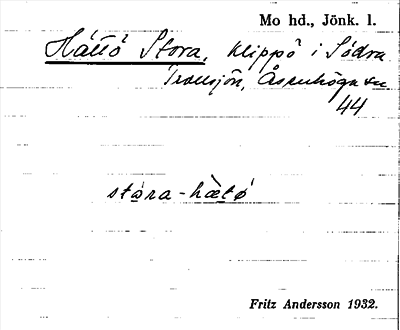 Mo hd., Jönk. l.
Hättö Stora, klippö i Södra
Svansjön, Åsenhöga sn
44
stóra-hæ̀tǿ
Fritz Andersson 1932.